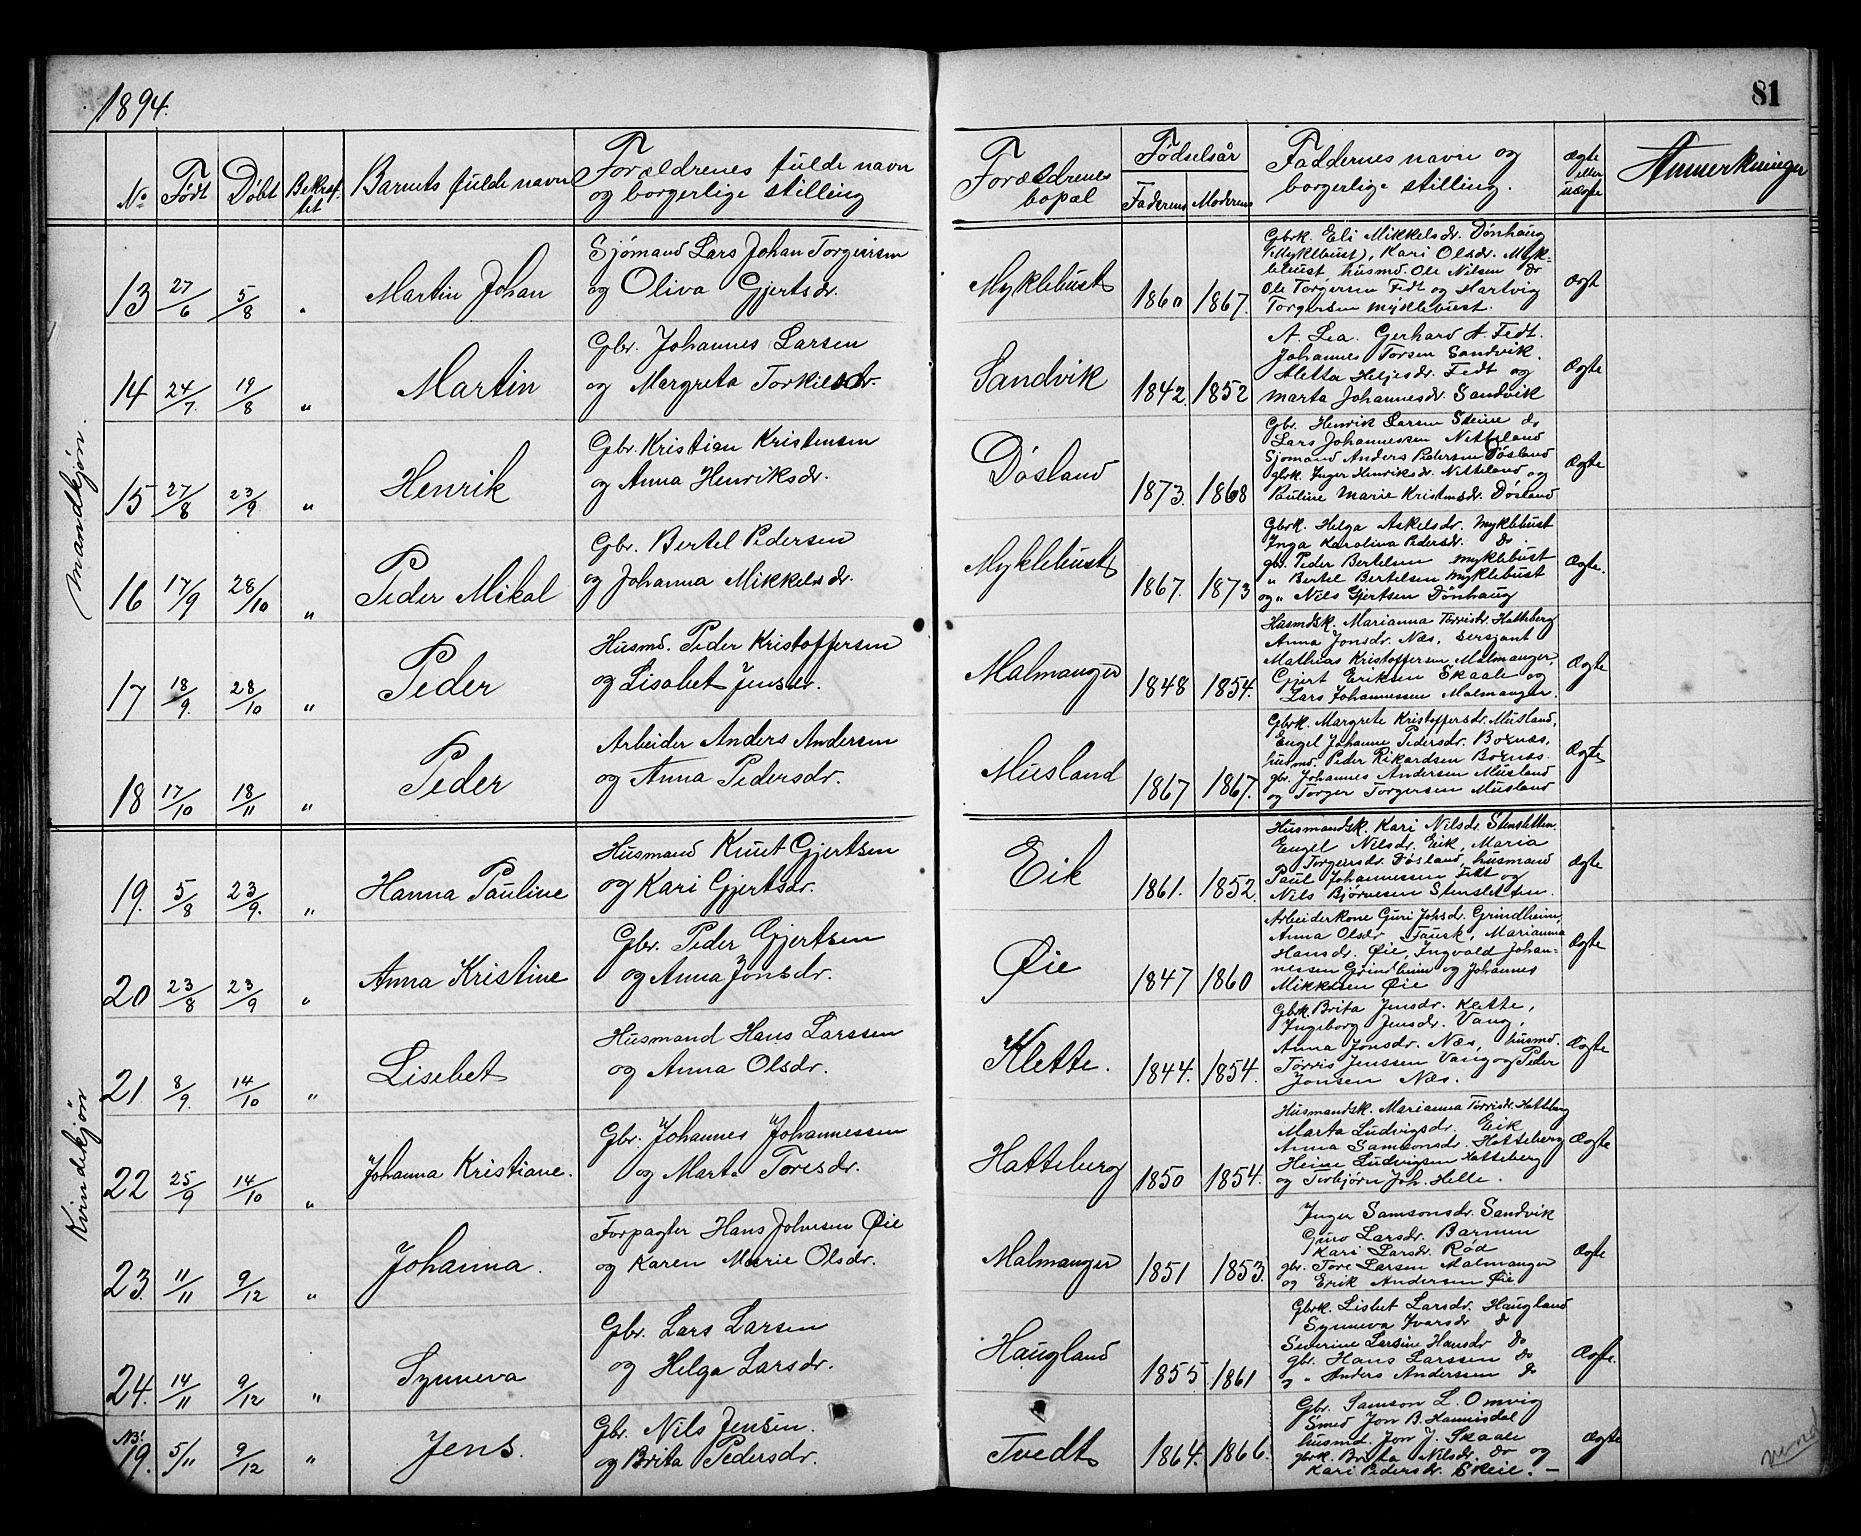 1894.
81
No
Født
Døbt
Bekræf-
tet
Barnets fulde navn
Forældrenes fulde navn
og borgerlige stilling
Forældrenes
bopæl
Fødselsår
Faderens
Moderens
Faddernes navn og
borgerlige stilling.
Ægte
eller
uægte
Anmerkninger
Mandkjøn.
13 27/6 5/8 " Martin Johan
Sjómand Lars Johan Torgeirsen
og Oliva Gjertsdr.
Myklebust 1860 1867.
Gbrk. Eli Mikkelsdr. Dónhaug
(Myklebust), Kari Olsdr. Myk-
lebust, husmd. Ole Nilsen do
Ole Torgersen Fedt og Hartvig
Torgersen Myklebust.
Ægt
14 24/7. 19/8 " Martin
Gbr. Johannes Larsen
og Margreta Torkilsdr.
Sandvik 1842. 1852
A. Lea. Gerhard A. Fedt.
Johannes Torsen Sandvik.
Aletta Heljesdr. Fedt og
Marta Johannesdr. Sandvik
Ægte
15 27/8 23/9 " Henrik
Gbr. Kristian Kristensen
og Anna Henriksdr.
Dósland 1873. 1868
Gbr. Henrik Larsen Steine do
Lars Johannessen Netteland
Sjomand Anders Pedersen Dósland
gbrk. Inger Henriksdr. Netteland og
Pauline Marie Kristensdr. Dósland
Ægte
16 17/9 28/10 " Peder Mikal
Gbr. Bertel Pedersen
og Johanna Mikkelsdr.
Myklebust 1867. 1873
Gbrk. Helga Askelsdr. Myklebust
Inga Karolina Pedersdr. do.
gbr. Peder Bertelsen Myklebust
" Bertel Bertelsen Myklebust
og " Nils Gjertsen Dónhaug
Ægte.
17 18/9. 28/10 " Peder
Husmd. Peder Kristoffersen
og Lisabet Jensdr.
Malmanger 1848 1854.
Husmdsk. Marianna Torrisdr. Hatteberg
Anna Jonsdr. Næs, Sersjant
Mathias Kristoffersen, Malmanger,
Gjert Eriksen Skaale og
Lars Johannessen Malmanger.
Ægte
18 17/10 18/11 " Peder
Arbeider Anders Andersen
og Anna Pedersdr.
Musland 1867 1867.
Gbrk. Margrete Kristoffersdr. Musland,
Engel Johanne Pedersdr. Boxnæs,
husmd. Peder Rikardsen Boxnæs
gbr. Johannes Andersen Musland
og Torger Torgersen Musland
Ægte
Kvindekjøn
19. 5/8 23/9. " Hanna Pauline
Husmand Knut Gjertsen
og Kari Gjertsdr.
Eik 1861. 1852.
Husmandsk. Kari Nilsdr. Stensletten.
Engel Nilsdr. Eik, Maria
Torgeirsdr. Dósland, husmand
Paul Johannessen Fedt og
Nils Bjørnesen Stensletten.
Ægte
20 23/8 23/9 " Anna Kristine
Gbr. Peder Gjertsen
og Anna Jonsdr.
Øie 1847 1860
Arbeiderkone Guri Johsdr. Grindheim,
Anna Olsdr. Fausk, Marianna
Hansdr. Øie, Ingvald Johan-
nessen Grindheim og Johannes
Mikkelsen Øie
Ægte
21 8/9. 14/10 " Lisebet
Husmand Hans Larssen
og Anna Olsdr.
Klette. 1844. 1854.
Gbk. Brita Jensdr. Klette,
Ingeborg Jensdr. Vang,
Anna Jonsdr. Næs, husmd.
Tørris Jenssen Vang og Peder
Jonsen Næs.
Ægte
22 25/9 14/10 " Johanna Kristiane.
Gbr. Johannes Johannessen
og Marta Toresdr.
Hatteberg 1850 1854.
Husmandsk. Marianna Tørrisdr. Hatteberg
Marta Ludvigsdr. Eik
Anna Samsonsdr. Hatteberg
Heine Ludvigsen Hatteberg
og Torbjørn Joh. Helle.
Ægte
23. 11/11 9/12 " Johanna.
Forpagter Hans Johnsen Øie
og Karen Marie Olsdr.
Malmanger 1851 1853.
Inger Samsonsdr. Sandvik
Guro Larsdr. Barmen
Kari Larsdr. Rød
gbr. Tore Larsen Malmanger
og Erik Andersen Øie
Ægte
24. 14/11 9/12 " Synneva
Gbr. Lars Larsen
og Helga Larsdr.
Haugland 1855 1861
Gbrk. Lisbet Larsdr. Haugland
Synneva Ivarsdr do
Severine Larsine Hansdr do
gbr. Hans Larssen do
" Anders Anderssen do
Ægte.
NB!
19. 5/11 9/12 " Jens.
Gbr. Nils Jensen.
og Brita Pedersdr.
Tvedt 1864. 1866.
Gbr. Samson L. Omvig
Smed Jon B. Hammisdal
husmd. Jon J. Skaale
gbrk. Brita Nilsdr. do og
Kari Pedersdr. Skeie. –
Ægte
vend